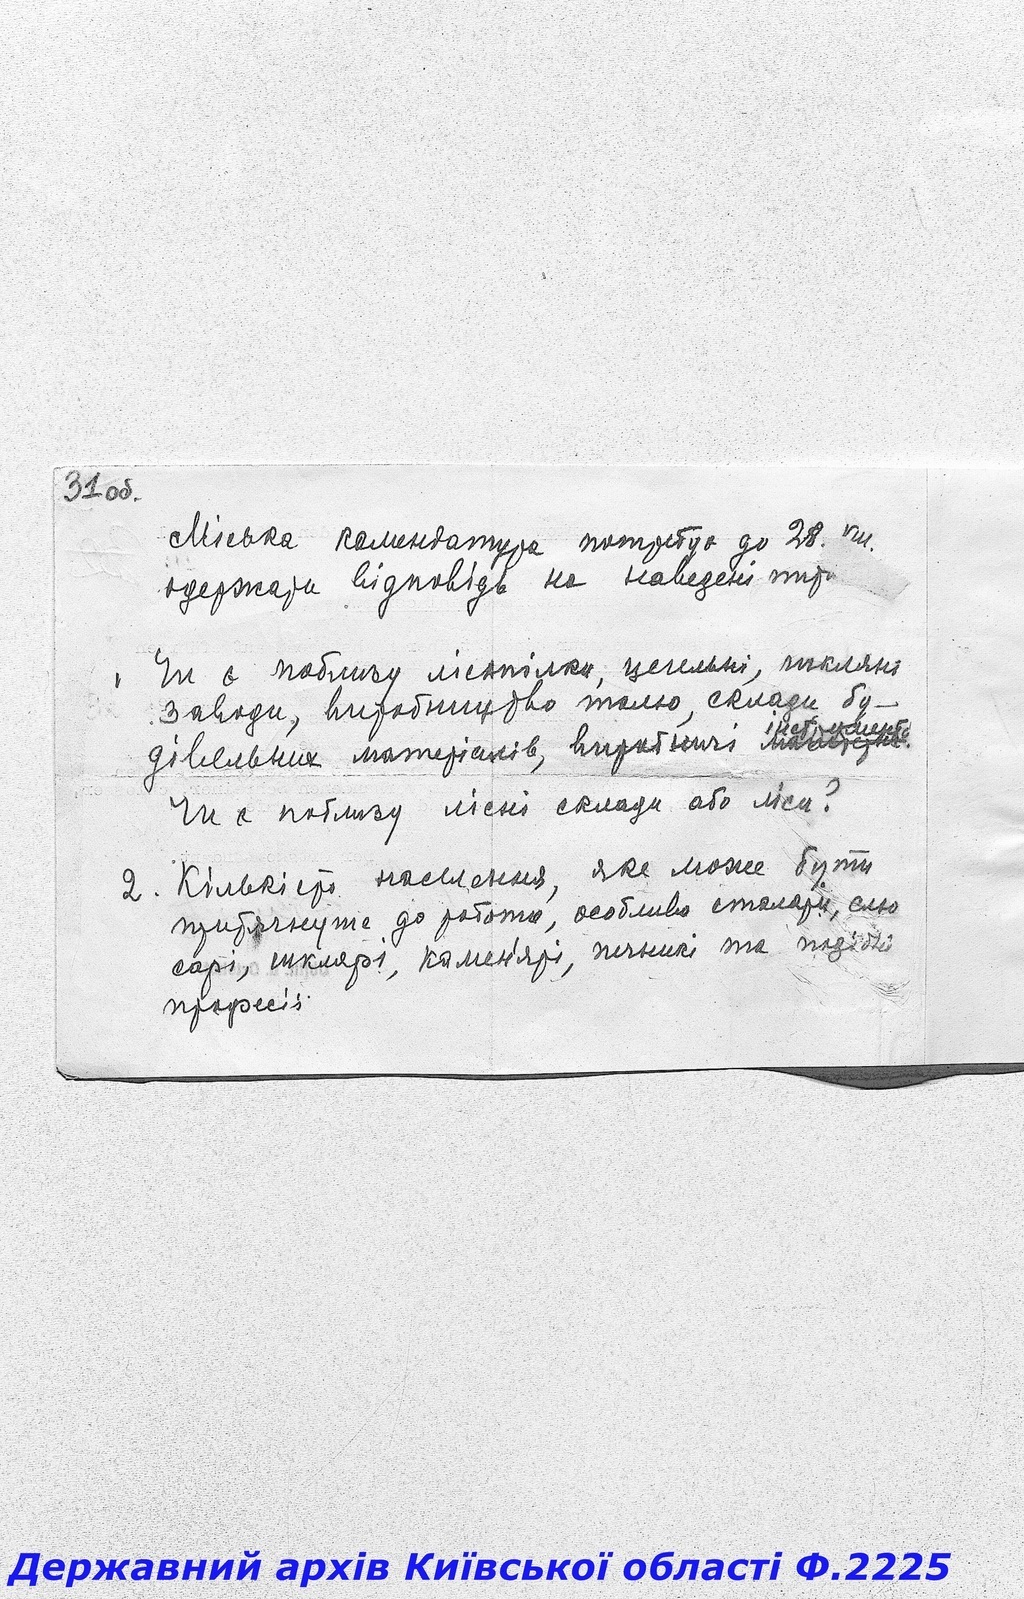 31 об.
Міська комендатура потребує до 28. VIII.
одержати відповідь на наведені
Чи є поблизу лісопілки, цегельні, шкляні
заводи, виробництво толю, склади бу-
дівельних матеріалів, виробничі інструменти.
Чи є поблизу лісні склади або ліси?
2. Кількість населення, яке може бути
притягнуте до роботи, особливо столярі, слю
сарі, шклярі, каменярі, печникі та подібні
професії.
Державний архів Київської області Ф.2225